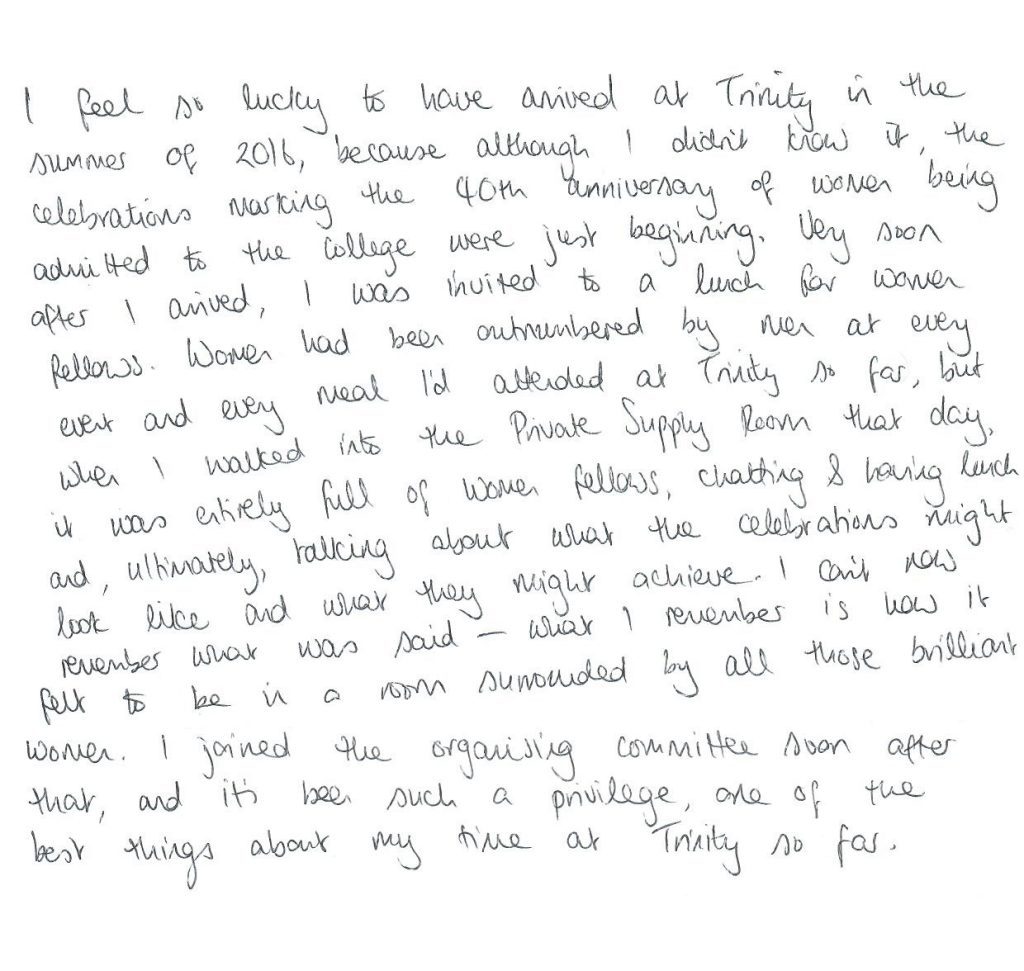 I feel so lucky to have arrived at Trinity in the
summer of 2016, because although I didn't know it, the
celebrations marking the 40th anniversary of women being
admitted to the College were just beginning. Very soon
after I arrived, I was invited to a lunch for women
fellows. Women had been outnumbered by men at every
event and every meal I'd attended at Trinity so far, but
when I walked into the Private Supply Room that day,
it was entirely full of women fellows, chatting & having lunch
and, ultimately, talking about what the celebrations might
look like and what they might achieve. I can't now
remember what was said – what I remember is how it
felt to be in a room surrounded by all those brilliant
women. I joined the organising committee soon after
that, and it's been such a privilege, one of the
best things about my time at Trinity so far.